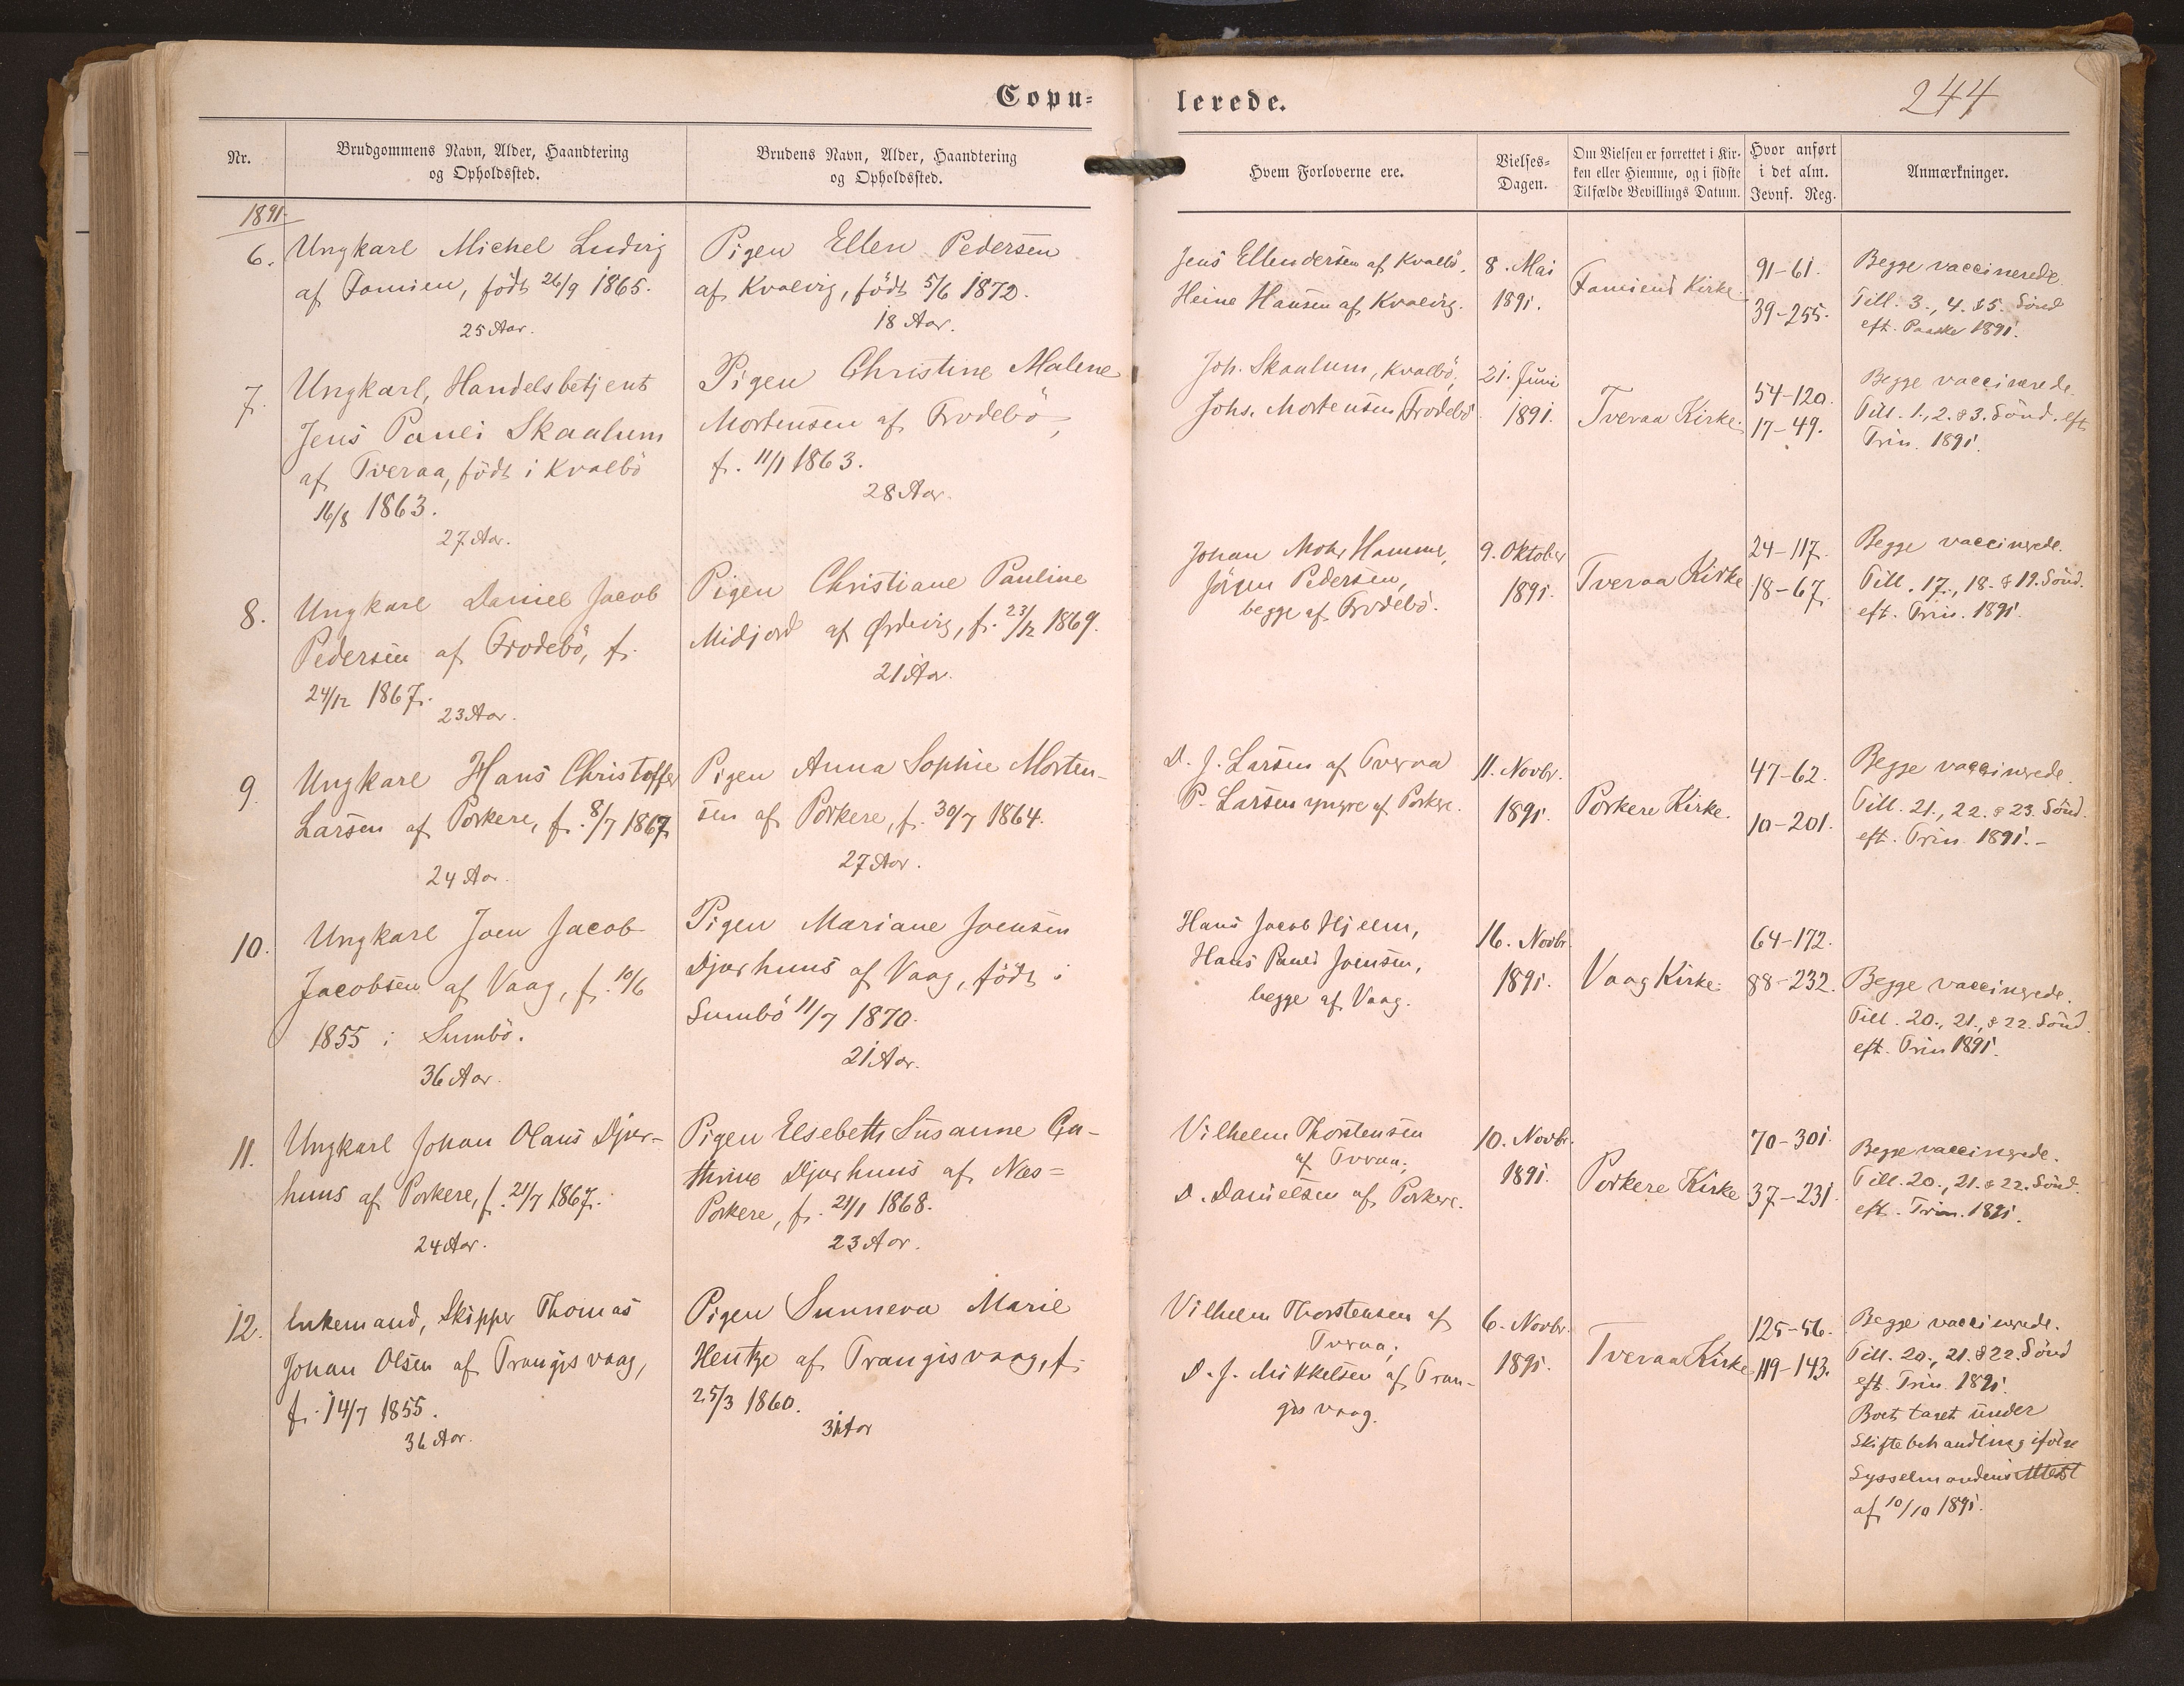 Copu-
lerede.
244
Nr.
Brudgommens Navn, Alder, Haandtering
og Opholdssted.
Brudens Navn, Alder, Haandtering
og Opholdssted.
Hvem Forloverne ere.
Vielses-
Dagen.
Om Vielsen er forrettet i Kir-
ken eller Hjemme, og i sidste
Tilfælde Bevillings Datum.
Hvor anført
i det alm.
Jevnf. Reg.
Anmærkninger.
1891
6.
Ungkarl Michel Ludvig
af Famien, födt 26/9 1865.
25 Aar.
Pigen Ellen Pedersen
af Kvalvig, födt 5/6 1872.
18 Aar.
Jens Ellendersen af Kvalbö.
Heine Hansen af Kvalvig.
8. Mai
1891.
Famiens Kirke.
91-61.
39-255.
Begge vaccinerede.
Till. 3., 4. & 5. Sönd
eft. Paaske 1891.
7.
Ungkarl, Handelsbetjent
Jens Pauli Skaalum
af Tveraa, födt i Kvalbö
16/8 1863.
27 Aar.
Pigen Christine Malene
Mortensen af Frodebö,
f. 11/1 1863.
28 Aar.
Joh. Skaalum, Kvalbö,
Johs. Mortensen, Frodebö.
21. Juni
1891.
Tveraa Kirke.
54-120.
17-49.
Begge vaccinerede.
Till. 1., 2. & 3. Sönd. eft
Trin. 1891.
8.
Ungkarl Daniel Jacob
Pedersen af Frodebö, f.
24/12 1867.
23 Aar.
Pigen Christiane Pauline
Midjord af Ørdevig, f. 23/12 1869.
21 Aar.
Johan Mohr Hammer,
Jörgen Pedersen,
begge af Frodebö.
9. Oktober
1891.
Tveraa Kirke
24-117.
18-67.
Begge vaccinerede.
Till. 17., 18. & 19. Sönd.
eft. Trin. 1891.
9.
Ungkarl Hans Christoffer
Larsen af Porkere, f. 8/7 1867
24 Aar.
Pigen Anna Sophie Morten-
sen af Porkere, f. 30/7 1864.
27 Aar.
D. J. Larsen af Tveraa
P. Larsen yngre af Porkere.
11. Novbr.
1891.
Porkere Kirke.
47-62.
10-201.
Begge vaccinerede.
Till. 21., 22. & 23. Sönd.
eft. Trin. 1891.-
10.
Ungkarl Joen Jacob
Jacobsen af Vaag, f. 10/6
1855 i Sumbö.
36 Aar.
Pigen Mariane Joensen
Djurhuus af Vaag, födt i
Sumbö 11/7 1870.
21 Aar.
Hans Jacob Hjelm,
Hans Pauli Joensen,
begge af Vaag.
16. Novbr.
1891.
Vaag Kirke.
64-172.
88-232.
Begge vaccinerede.
Till. 20., 21., & 22. Sönd.
eft. Trin 1891.
11.
Ungkarl Johan Olaus Djur-
huus af Porkere, f. 21/7 1867.
24 Aar.
Pigen Elsebeth Susanne Ca-
thrine Djurhuus af Næs=
Porkere, f. 21/1 1868.
23 Aar.
Vilhelm Thorstensen
af Tveraa;
D. Danielsen af Porkere.
10. Novbr.
1891.
Porkere Kirke
70-301.
37-231.
Begge vaccinerede.
Till. 20., 21. & 22. Sönd.
eft. Trin. 1891.
12.
Enkemand, Skipper Thomas
Johan Olsen af Trangisvaag,
f. 14/7 1855.
36 Aar.
Pigen Sunneva Marie
Hentze af Trangisvaag, f.
25/3 1860.
31 Aar
Vilhelm Thorstensen af
Tveraa;
D. J. Mikkelsen af Tran-
gisvaag.
6. Novbr.
1891.
Tveraa Kirke
125-56.
119-143.
Begge vaccinerede.
Till. 20., 21. & 22. Sönd
eft. Trin. 1891.
Boet taget under
Skiftebehandling ifölge
Sysselmandens Attest
af 10/10 1891.